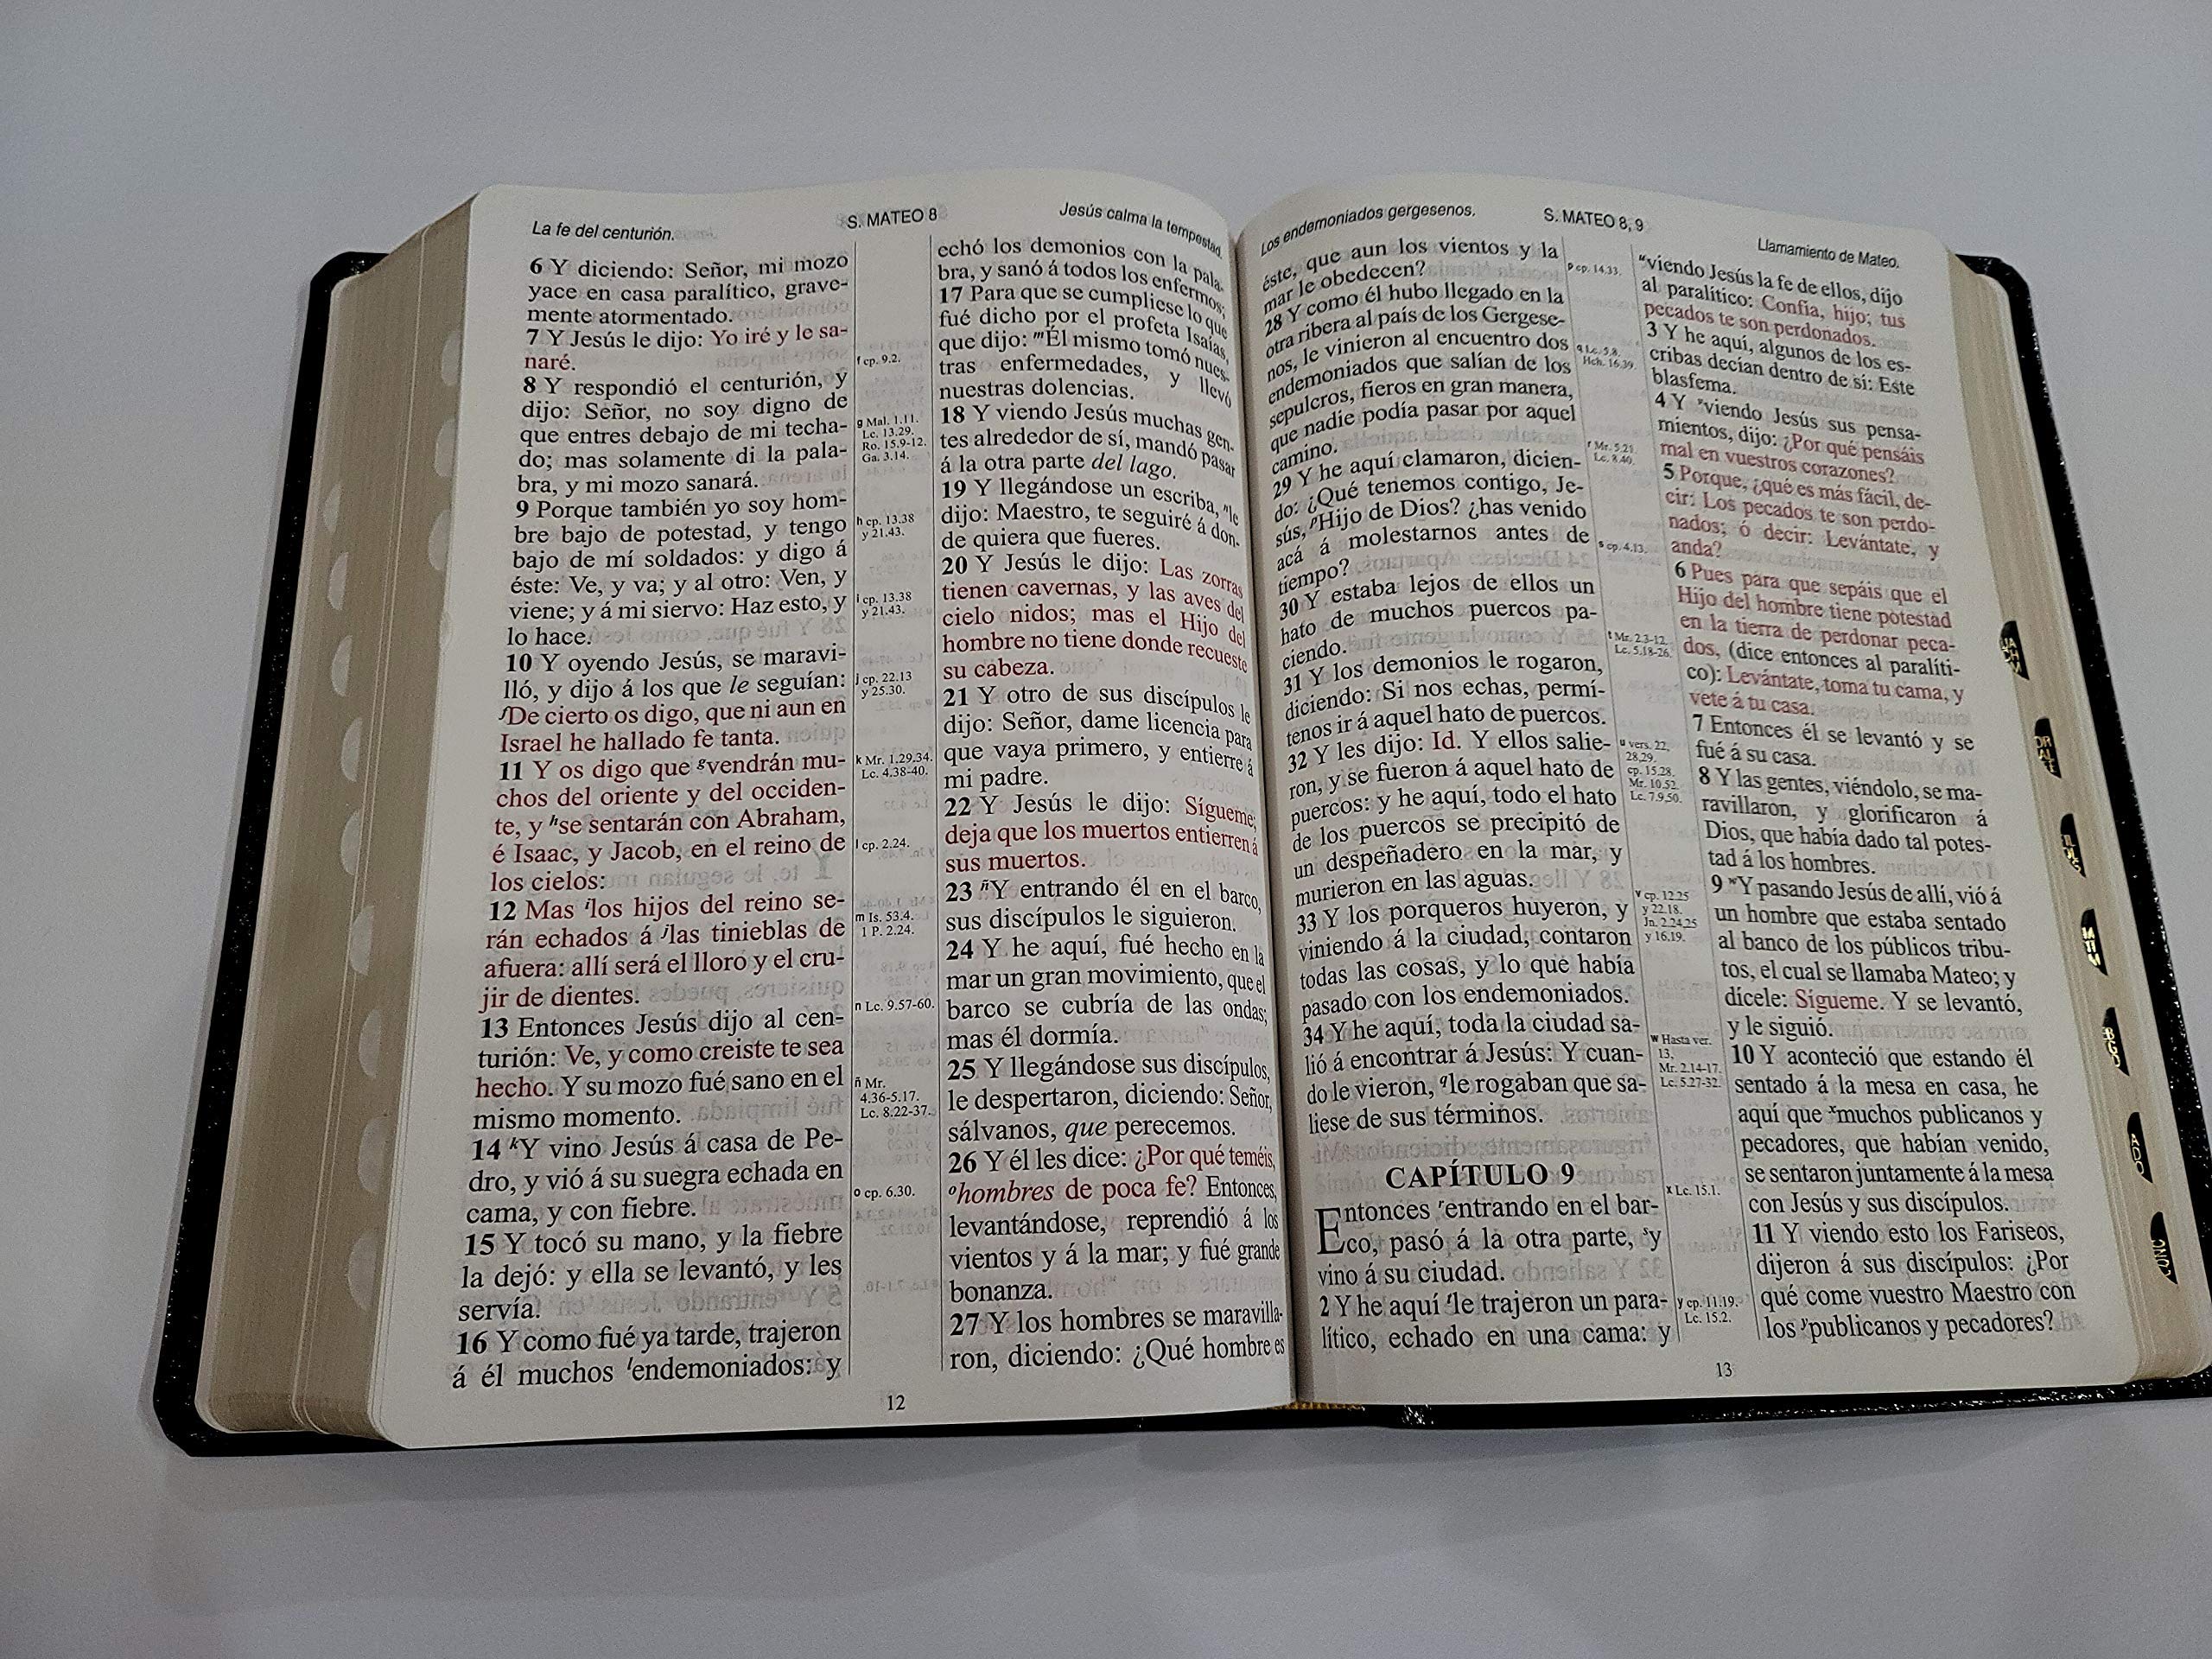 La fe del centurión.
S. MATEO 8
Jesús calma la tempestad.
6 Y diciendo: Señor, mi mozo
yace en casa paralítico, grave-
mente atormentado.
7 Y Jesús le dijo: Yo iré y le sa-
naré.
8 Y respondió el centurión, y
dijo: Señor, no soy digno de
que entres debajo de mi techa-
do; mas solamente di la pala-
bra, y mi mozo sanará.
9 Porque también yo soy hom-
bre bajo de potestad, y tengo
bajo de mí soldados: y digo á
éste: Ve, y va; y al otro: Ven, y
viene; y á mi siervo: Haz esto, y
lo hace.
10 Y oyendo Jesús, se maravi-
lló, y dijo á los que le seguían:
fDe cierto os digo, que ni aun en
Israel he hallado fe tanta.
11 Y os digo que gvendrán mu-
chos del oriente y del occiden-
te, y hse sentarán con Abraham,
é Isaac, y Jacob, en el reino de
los cielos:
12 Mas ilos hijos del reino se-
rán echados á jlas tinieblas de
afuera: allí será el lloro y el cru-
jir de dientes.
13 Entonces Jesús dijo al cen-
turión: Ve, y como creiste te sea
hecho. Y su mozo fué sano en el
mismo momento.
14 kY vino Jesús á casa de Pe-
dro, y vió á su suegra echada en
cama, y con fiebre.
15 Y tocó su mano, y la fiebre
la dejó: y ella se levantó, y les
servía.
16 Y como fué ya tarde, trajeron
á él muchos lendemoniados: y
f cp. 9.2.
g Mal. 1.11.
Lc. 13.29.
Ro. 15.9-12.
Ga. 3.14.
h cp. 13.38
y 21.43.
i cp. 13.38
y 21.43.
j cp. 22.13
y 25.30.
k Mr. 1.29.34.
Lc. 4.38-40.
l cp. 2.24.
m Is. 53.4.
1 P. 2.24.
n Lc. 9.57-60.
ñ Mr.
4.36-5.17.
Lc. 8.22-37.
o cp. 6.30.
echó los demonios con la pala-
bra, y sanó á todos los enfermos;
17 Para que se cumpliese lo que
fué dicho por el profeta Isaías,
que dijo: mÉl mismo tomó nues-
tras enfermedades, y llevó
nuestras dolencias.
18 Y viendo Jesús muchas gen-
tes alrededor de sí, mandó pasar
á la otra parte del lago.
19 Y llegándose un escriba, nle
dijo: Maestro, te seguiré á don-
de quiera que fueres.
20 Y Jesús le dijo: Las zorras
tienen cavernas, y las aves del
cielo nidos; mas el Hijo del
hombre no tiene donde recueste
su cabeza.
21 Y otro de sus discípulos le
dijo: Señor, dame licencia para
que vaya primero, y entierre á
mi padre.
22 Y Jesús le dijo: Sígueme;
deja que los muertos entierren á
sus muertos.
23 ñY entrando él en el barco,
sus discípulos le siguieron.
24 Y he aquí, fué hecho en la
mar un gran movimiento, que el
barco se cubría de las ondas;
mas él dormía.
25 Y llegándose sus discípulos,
le despertaron, diciendo: Señor,
sálvanos, que perecemos.
26 Y él les dice: ¿Por qué teméis,
ohombres de poca fe? Entonces,
levantándose, reprendió á los
vientos y á la mar; y fué grande
bonanza.
27 Y los hombres se maravilla-
ron, diciendo: ¿Qué hombre es
12
Los endemoniados gergesenos.
S. MATEO 8, 9
Llamamiento de Mateo.
éste, que aun los vientos y la
mar le obedecen?
28 Y como él hubo llegado en la
otra ribera al país de los Gergese-
nos, le vinieron al encuentro dos
endemoniados que salían de los
sepulcros, fieros en gran manera,
que nadie podía pasar por aquel
camino.
29 Y he aquí clamaron, dicien-
do: ¿Qué tenemos contigo, Je-
sús, pHijo de Dios? ¿has venido
acá á molestarnos antes de
tiempo?
30 Y estaba lejos de ellos un
hato de muchos puercos pa-
ciendo.
31 Y los demonios le rogaron,
diciendo: Si nos echas, permí-
tenos ir á aquel hato de puercos.
32 Y les dijo: Id. Y ellos salie-
ron, y se fueron á aquel hato de
puercos: y he aquí, todo el hato
de los puercos se precipitó de
un despeñadero en la mar, y
murieron en las aguas.
33 Y los porqueros huyeron, y
viniendo á la ciudad, contaron
todas las cosas, y lo que había
pasado con los endemoniados.
34 Y he aquí, toda la ciudad sa-
lió á encontrar á Jesús: Y cuan-
do le vieron, qle rogaban que sa-
liese de sus términos.
CAPÍTULO 9
Entonces rentrando en el bar-
co, pasó á la otra parte, sy
vino á su ciudad.
2 Y he aquí tle trajeron un para-
lítico, echado en una cama: y
p cp. 14.33.
q Lc. 5.8.
Hch. 16.39.
r Mr. 5.21.
Lc. 8.40.
s cp. 4.13.
t Mr. 2.3-12.
Lc. 5.18-26.
u vers. 22,
28,29.
cp. 15.28.
Mr. 10.52.
Lc. 7.9,50.
v cp. 12.25
y 22.18.
Jn. 2.24,25
y 16.19.
w Hasta ver.
13,
Mr. 2.14-17.
Lc. 5.27-32.
x Lc. 15.1.
y cp. 11.19.
Lc. 15.2.
uviendo Jesús la fe de ellos, dijo
al paralítico: Confía, hijo; tus
pecados te son perdonados.
3 Y he aquí, algunos de los es-
cribas decían dentro de sí: Este
blasfema.
4 Y vviendo Jesús sus pensa-
mientos, dijo: ¿Por qué pensáis
mal en vuestros corazones?
5 Porque, ¿qué es más fácil, de-
cir: Los pecados te son perdo-
nados; ó decir: Levántate, y
anda?
6 Pues para que sepáis que el
Hijo del hombre tiene potestad
en la tierra de perdonar peca-
dos, (dice entonces al paralíti-
co): Levántate, toma tu cama, y
vete á tu casa.
7 Entonces él se levantó y se
fué á su casa.
8 Y las gentes, viéndolo, se ma-
ravillaron, y glorificaron á
Dios, que había dado tal potes-
tad á los hombres.
9 wY pasando Jesús de allí, vió á
un hombre que estaba sentado
al banco de los públicos tribu-
tos, el cual se llamaba Mateo; y
dícele: Sígueme. Y se levantó,
y le siguió.
10 Y aconteció que estando él
sentado á la mesa en casa, he
aquí que xmuchos publicanos y
pecadores, que habían venido,
se sentaron juntamente á la mesa
con Jesús y sus discípulos.
11 Y viendo esto los Fariseos,
dijeron á sus discípulos: ¿Por
qué come vuestro Maestro con
los ypublicanos y pecadores?
13
CONC